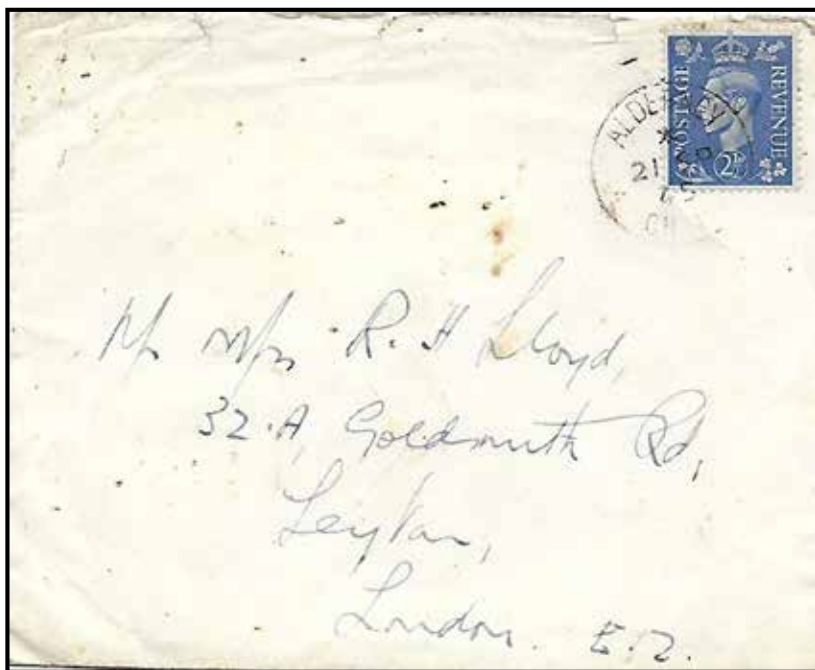 POSTAGE REVENUE
2½
ALDERNEY
21 SP
45
R. H Lloyd,
32.A, Goldsmith Rd,
Leyton,
London. E.